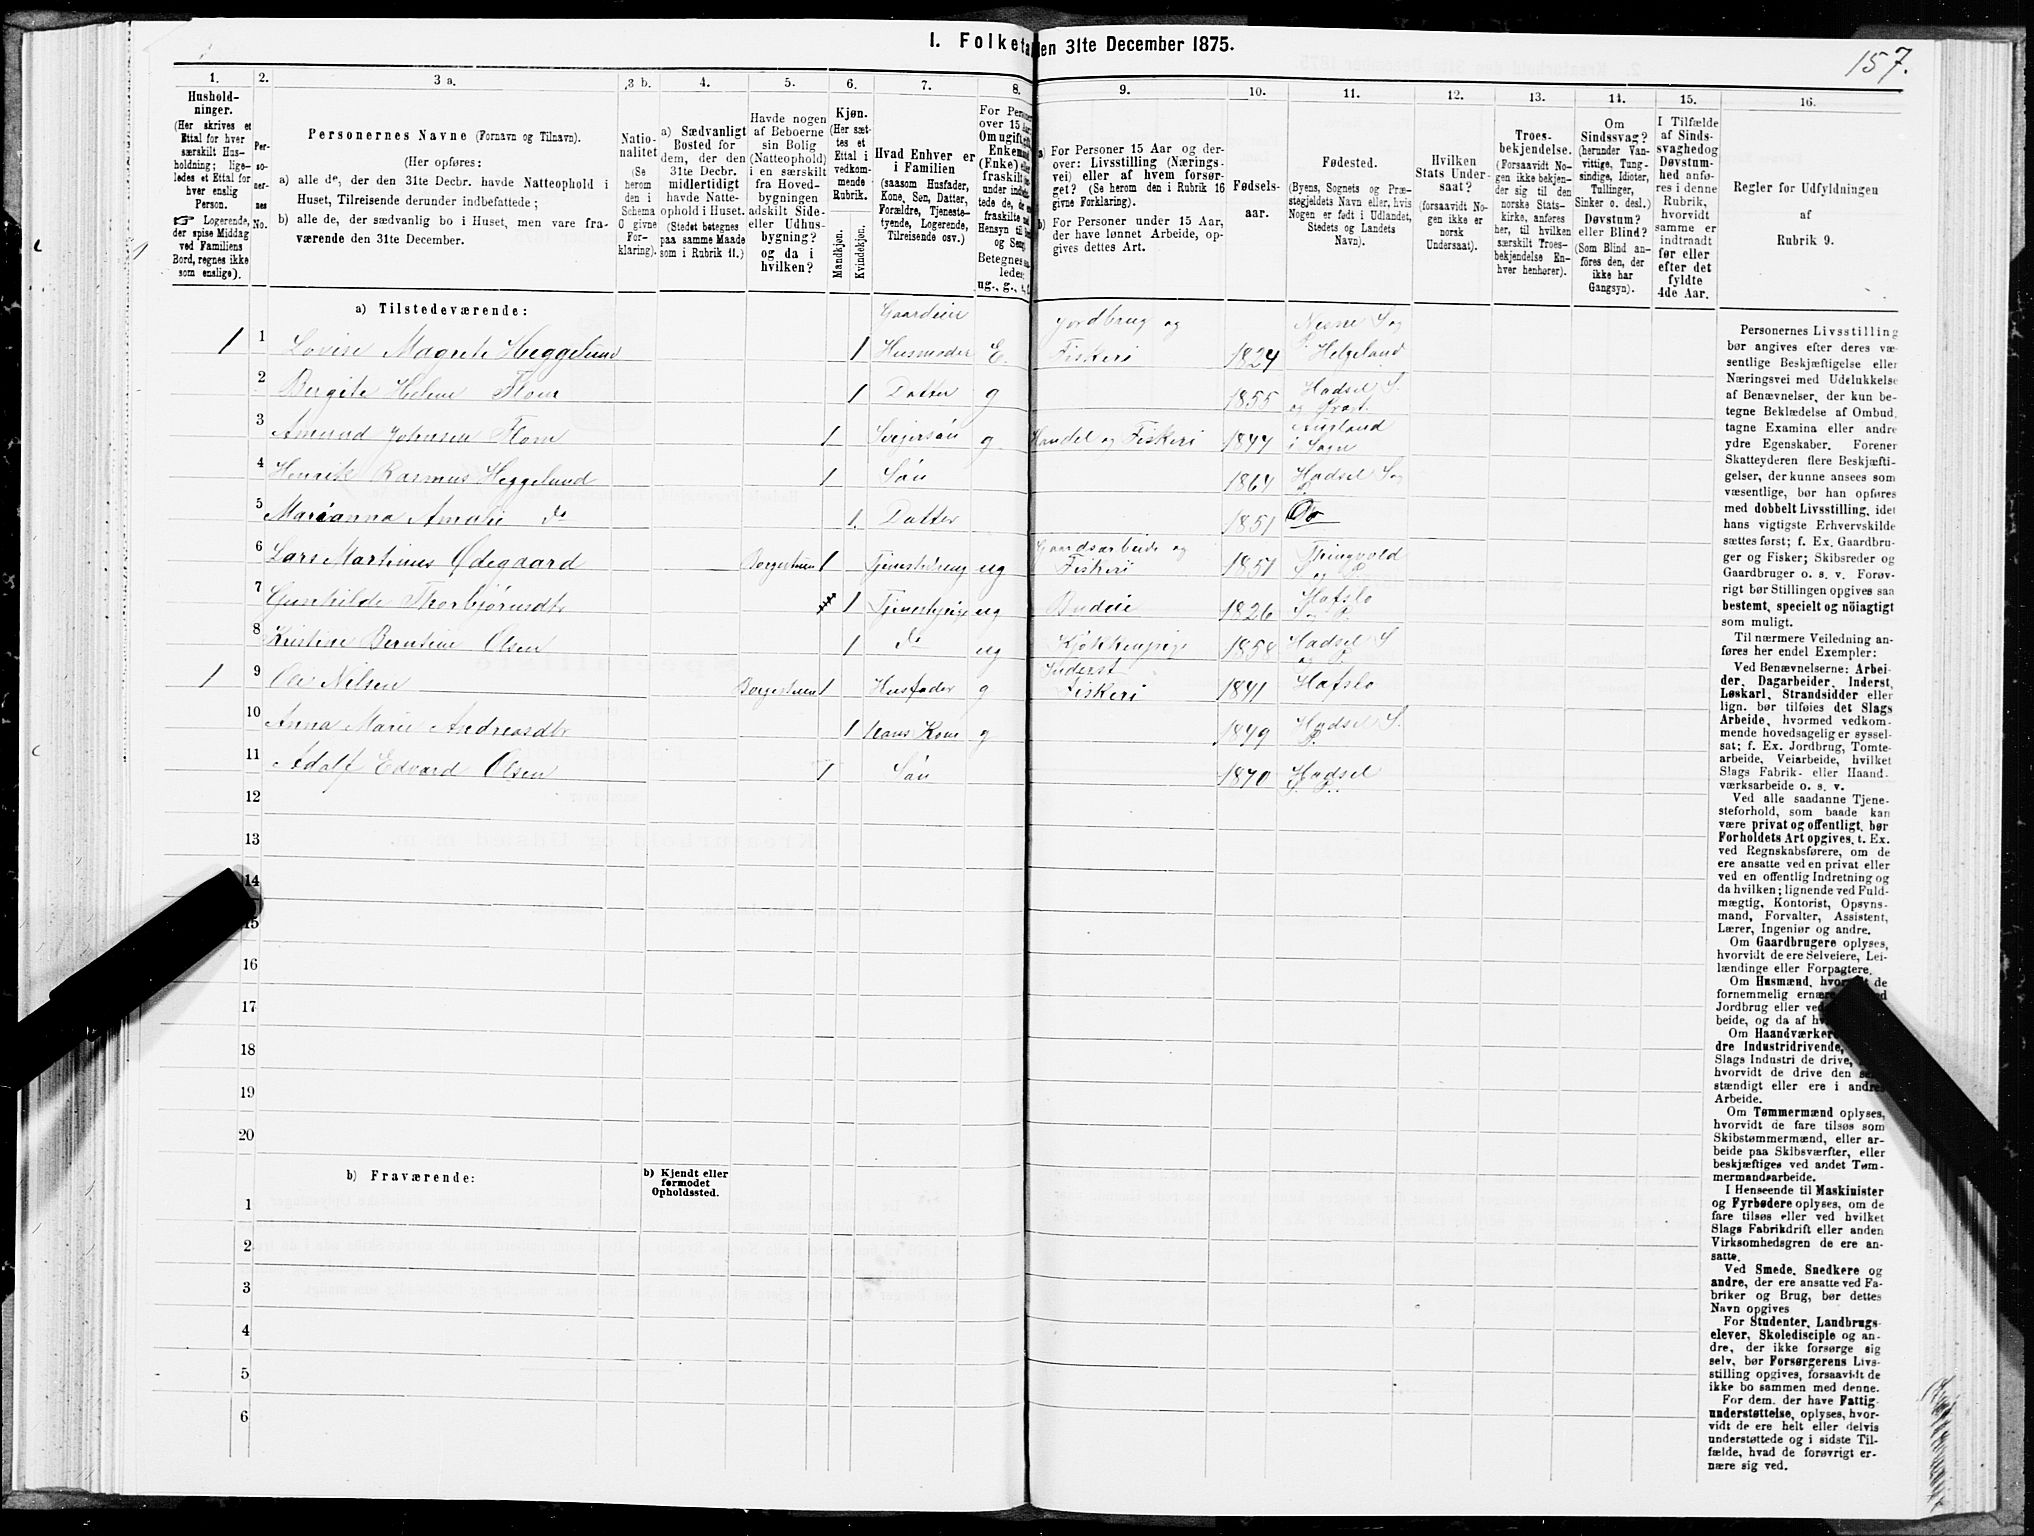 I. Folketæ
en 31te December 1875.
157.
1.
2.
3 a.
3 b.
4.
5.
6.
7.
8.
9.
10.
11.
12.
13.
14.
15.
16.
Hushold-
ninger.
(Her skrives et
Ettal for hver
særskilt Hus-
holdning; lige-
ledes et Ettal for
hver enslig
Person.
☞ Logerende,
der spise Middag
ved Familiens
Bord, regnes ikke
som enslige).
Per-
so-
ner-
nes
No.
Personernes Navne (Fornavn og Tilnavn).
(Her opføres:
a) alle de, der den 31te Decbr. havde Natteophold i
Huset, Tilreisende derunder indbefattede;
b) alle de, der sædvanlig bo i Huset, men vare fra-
værende den 31te December.
Natio-
nalitet
(Se
herom
den i
Schema
O givne
For-
klaring).
a) Sædvanligt
Bosted for
dem, der den
31te Decbr.
midlertidigt
havde Natte-
ophold i Huset.
(Stedet betegnes
paa samme Maade
som i Rubrik 11.)
Havde nogen
af Beboerne
sin Bolig
(Natteophold)
i en særskilt
fra Hoved-
bygningen
adskilt Side-
eller Udhus-
bygning?
og da i
hvilken?
Kjøn.
(Her sæt-
tes et
Ettal i
vedkom-
mende
Rubrik.
Mandkjøn.
Kvindekjøn.
Hvad Enhver er
i Familien
(saasom Husfader,
Kone, Søn, Datter,
Forældre, Tjeneste-
tyende, Logerende,
Tilreisende osv.)
For Pers
over 15 Aar
Om ugift, gi
Enkemand
(Enke) eller
fraskilt
Betegnes
ledes:
ug., g.,
a) For Personer 15 Aar og der-
over: Livsstilling (Nærings-
vei) eller af hvem forsør-
get? (Se herom den i Rubrik 16
givne Forklaring).
b) For Personer under 15 Aar,
der have lønnet Arbeide, op-
gives dettes Art.
Fødsels-
aar.
Fødested.
(Byens, Sognets og Præ-
stegjeldets Navn eller, hvis
Nogen er født i Udlandet,
Stedets og Landets
Navn).
Hvilken
Stats Under-
saat?
(forsaavidt No-
gen ikke er
norsk
Undersaat).
Troes-
bekjendelse.
(Forsaavidt No-
gen ikke bekjen-
der sig til den
norske Stats-
kirke, anføres
her, til hvilken
særskilt Troes-
bekjendelse En-
hver henhører).
Om
Sindssvag?
(herunder Van-
vittige, Tung-
sindige, Idioter,
Tullinger,
Sinker o. desl.)
Døvstum?
eller Blind?
(Som Blind an-
föres den, der
ikke har
Gangsyn).
I Tilfælde
af Sinds-
svaghed og
Døvstum-
hed anfø-
res i denne
Rubrik,
hvorvidt
samme er
indtraadt
før eller
efter det
fyldte
4de Aar.
Regler for Udfyldningen
af
Rubrik 9.
a) Tilstedeværende:
Gaardeier
Jordbrug og
Nesne S og
1 1 Lovise Magrete Heggelund 1 Husmoder E. Fiskeri 1824 P. Helgeland
2 Bergite Helene Flom 1 Datter g 1855 Hadsel S. og Præst.
3 Amund Johnsen Flom 1 Svigersön g Handel og Fiskeri 1844 Aurland i Sogn
4 Henrik Rasmus Heggelund 1 Sön 1864 Hadsel S og P
5 Marianna Amalie do 1 Datter 1851 Do
6 Lars Martinus Ödegaard Borgestuen 1 Tjenestedreng ug Gaardsarbeide og Fiskeri 1851 Thingvold S og P
7 Gunhilde Thorbjörnsdtr 1 Tjenestepige ug Budeie 1826 Hafslo S og P.
8 Kristine Berntine Olsen 1 do ug Kjökkenpige 1858 Hadsel S og P
1 9 Ole Nilsen Borgestuen 1 Husfader g Inderst Fiskeri 1841 Hafslo
10 Anna Marie Andreasdtr 1 Hans Kone g 1849 Hadsel S. P.
11 Adolf Edvard Olsen 1 Sön 1870 Hadsel S. P.
12
13
14
15
16
17
18
19
20
b) Fraværende:
b) Kjendt eller
formodet
Opholdssted.
1
2
3
4
5
6
Personernes Livsstilling
bør angives efter deres væ-
sentlige Beskjæftigelse eller
Næringsvei med Udelukkelse
af Benævnelser, der kun be-
tegne Beklædelse af Ombud,
tagne Examina eller andre
ydre Egenskaber. Forener
Skatteyderen flere Beskjæfti-
gelser, der kunne ansees som
væsentlige, bør han opføres
med dobbelt Livsstilling, idet
hans vigtigste Erhvervskilde
sættes først; f. Ex. Gaardbru-
ger og Fisker; Skibsreder og
Gaardbruger o. s. v. Forøv-
rigt bør Stillingen opgives saa
bestemt, specielt og nöiagtigt
som muligt.
Til nærmere Veiledning an-
føres her endel Exempler:
Ved Benævnelserne: Arbei-
der, Dagarbeider, Inderst,
Løskarl, Strandsidder eller
lign. bør tilføies det Slags
Arbeide, hvormed vedkom-
mende hovedsagelig er syssel-
sat; f. Ex. Jordbrug, Tomte-
arbeide, Veiarbeide, hvilket
Slags Fabrik- eller Haand-
værksarbeide o. s. v.
Ved alle saadanne Tjene-
steforhold, som baade kan
være privat og offentligt, bør
Forholdets Art opgives, t. Ex.
ved Regnskabsførere, om de
ere ansatte ved en privat eller
ved en offentlig Indretning og
da hvilken; lignende ved Fuld-
mægtig, Kontorist, Opsyns-
mand, Forvalter, Assistent,
Lærer, Ingeniør og andre.
Om Gaardbrugere oplyses,
hvorvidt de ere Selveiere, Lei-
lændinge eller Forpagtere.
Om Husmænd, de
fornemmelig
Jordbrug eller
beide, og da af
Om Haandværkere
dre Industridrivende,
Slags Industri de drive,
hvorvidt de drive den
stændigt eller ere i andres
Arbeide.
Om Tømmermænd oplyses,
hvorvidt de fare tilsøs som
Skibstømmermænd, eller ar-
beide paa Skibsværfter, eller
beskjæftiges ved andet Tøm-
mermandsarbeide.
I Henseende til Maskinister
og Fyrbødere oplyses, om de
fare tilsøs eller ved hvilket
Slags Fabrikdrift eller anden
Virksomhedsgren de ere an-
satte.
Ved Smede, Snedkere og
andre, der ere ansatte ved Fa-
briker og Brug, bør dettes
Navn opgives
For Studenter, Landbrugs-
elever, Skoledisciple og an-
dre, der ikke forsørge sig
selv, bør Forsørgerens Livs-
stilling opgives, forsaavidt de
ikke bo sammen med denne.
For dem, der have Fattig-
understøttelse, oplyses, hvor-
vidt de ere helt eller delvis
understøttede og i sidste Til-
fælde, hvad de forøvrigt er-
nære sig ved.